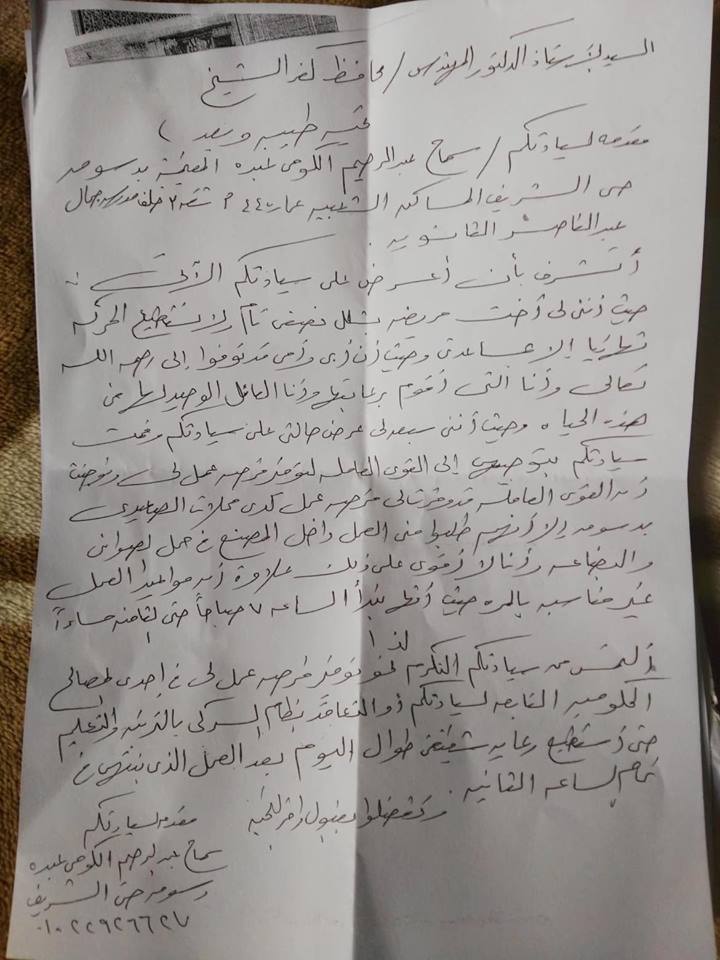 السيد الأستاذ الدكتور المهندس / محافظ كفر الشيخ
تحية طيبة وبعد )
مقدمه لسيادتكم / سماح عبدالرحيم الكومى عبده المقيمة بدسوق
حى الشريف المساكن الشعبية عمارة ٤٤ م شقه ٢ خلف مدرسه جمال
عبدالناصر الثانويه .
أتشرف بأن أعرض على سيادتكم الآتى :-
حيث أننى لى أخت مريضه بشلل نصفى تام ولا تستطيع الحركه
نهائيا إلا بمساعدتى وحيث أن أبى وأمى قد توفوا إلى رحمه الله
تعالى وأنا التى أقوم برعايتها وأنا العائل الوحيد لها فى
هذه الحياه وحيث أننى سبق لى عرض حالتى على سيادتكم وقمت
سيادتكم بتوجيهى إلى القوى العامله لتوفير فرصه عمل لى وفوجئت
أن القوى العامله قد وفرت لى فرصه عمل لدى محلات الصعيدى
بدسوق إلا أنهم طلبوا منى العمل داخل المصنع فى حمل الصوانى
والبضاعه وأنا لا أقوى على ذلك علاوة أن مواعيد العمل
غير مناسبه بالمره حيث أنها تبدأ الساعه ٧ صباحاً حتى الثامنه مساءاً
لذا
ألتمس من سيادتكم التكرم نحو توفير فرصه عمل لى فى إحدى المصالح
الحكوميه التابعه لسيادتكم أو التعاقد بنظام السركى بالتربيه والتعليم
حتى أستطيع رعايه شقيقتى طوال اليوم بعد العمل الذى ينتهى فى
تمام الساعه الثانيه .
وتفضلوا بقبول وافر التحيه
مقدمه لسيادتكم
سماح عبدالرحيم الكومى عبده
دسوق حى الشريف